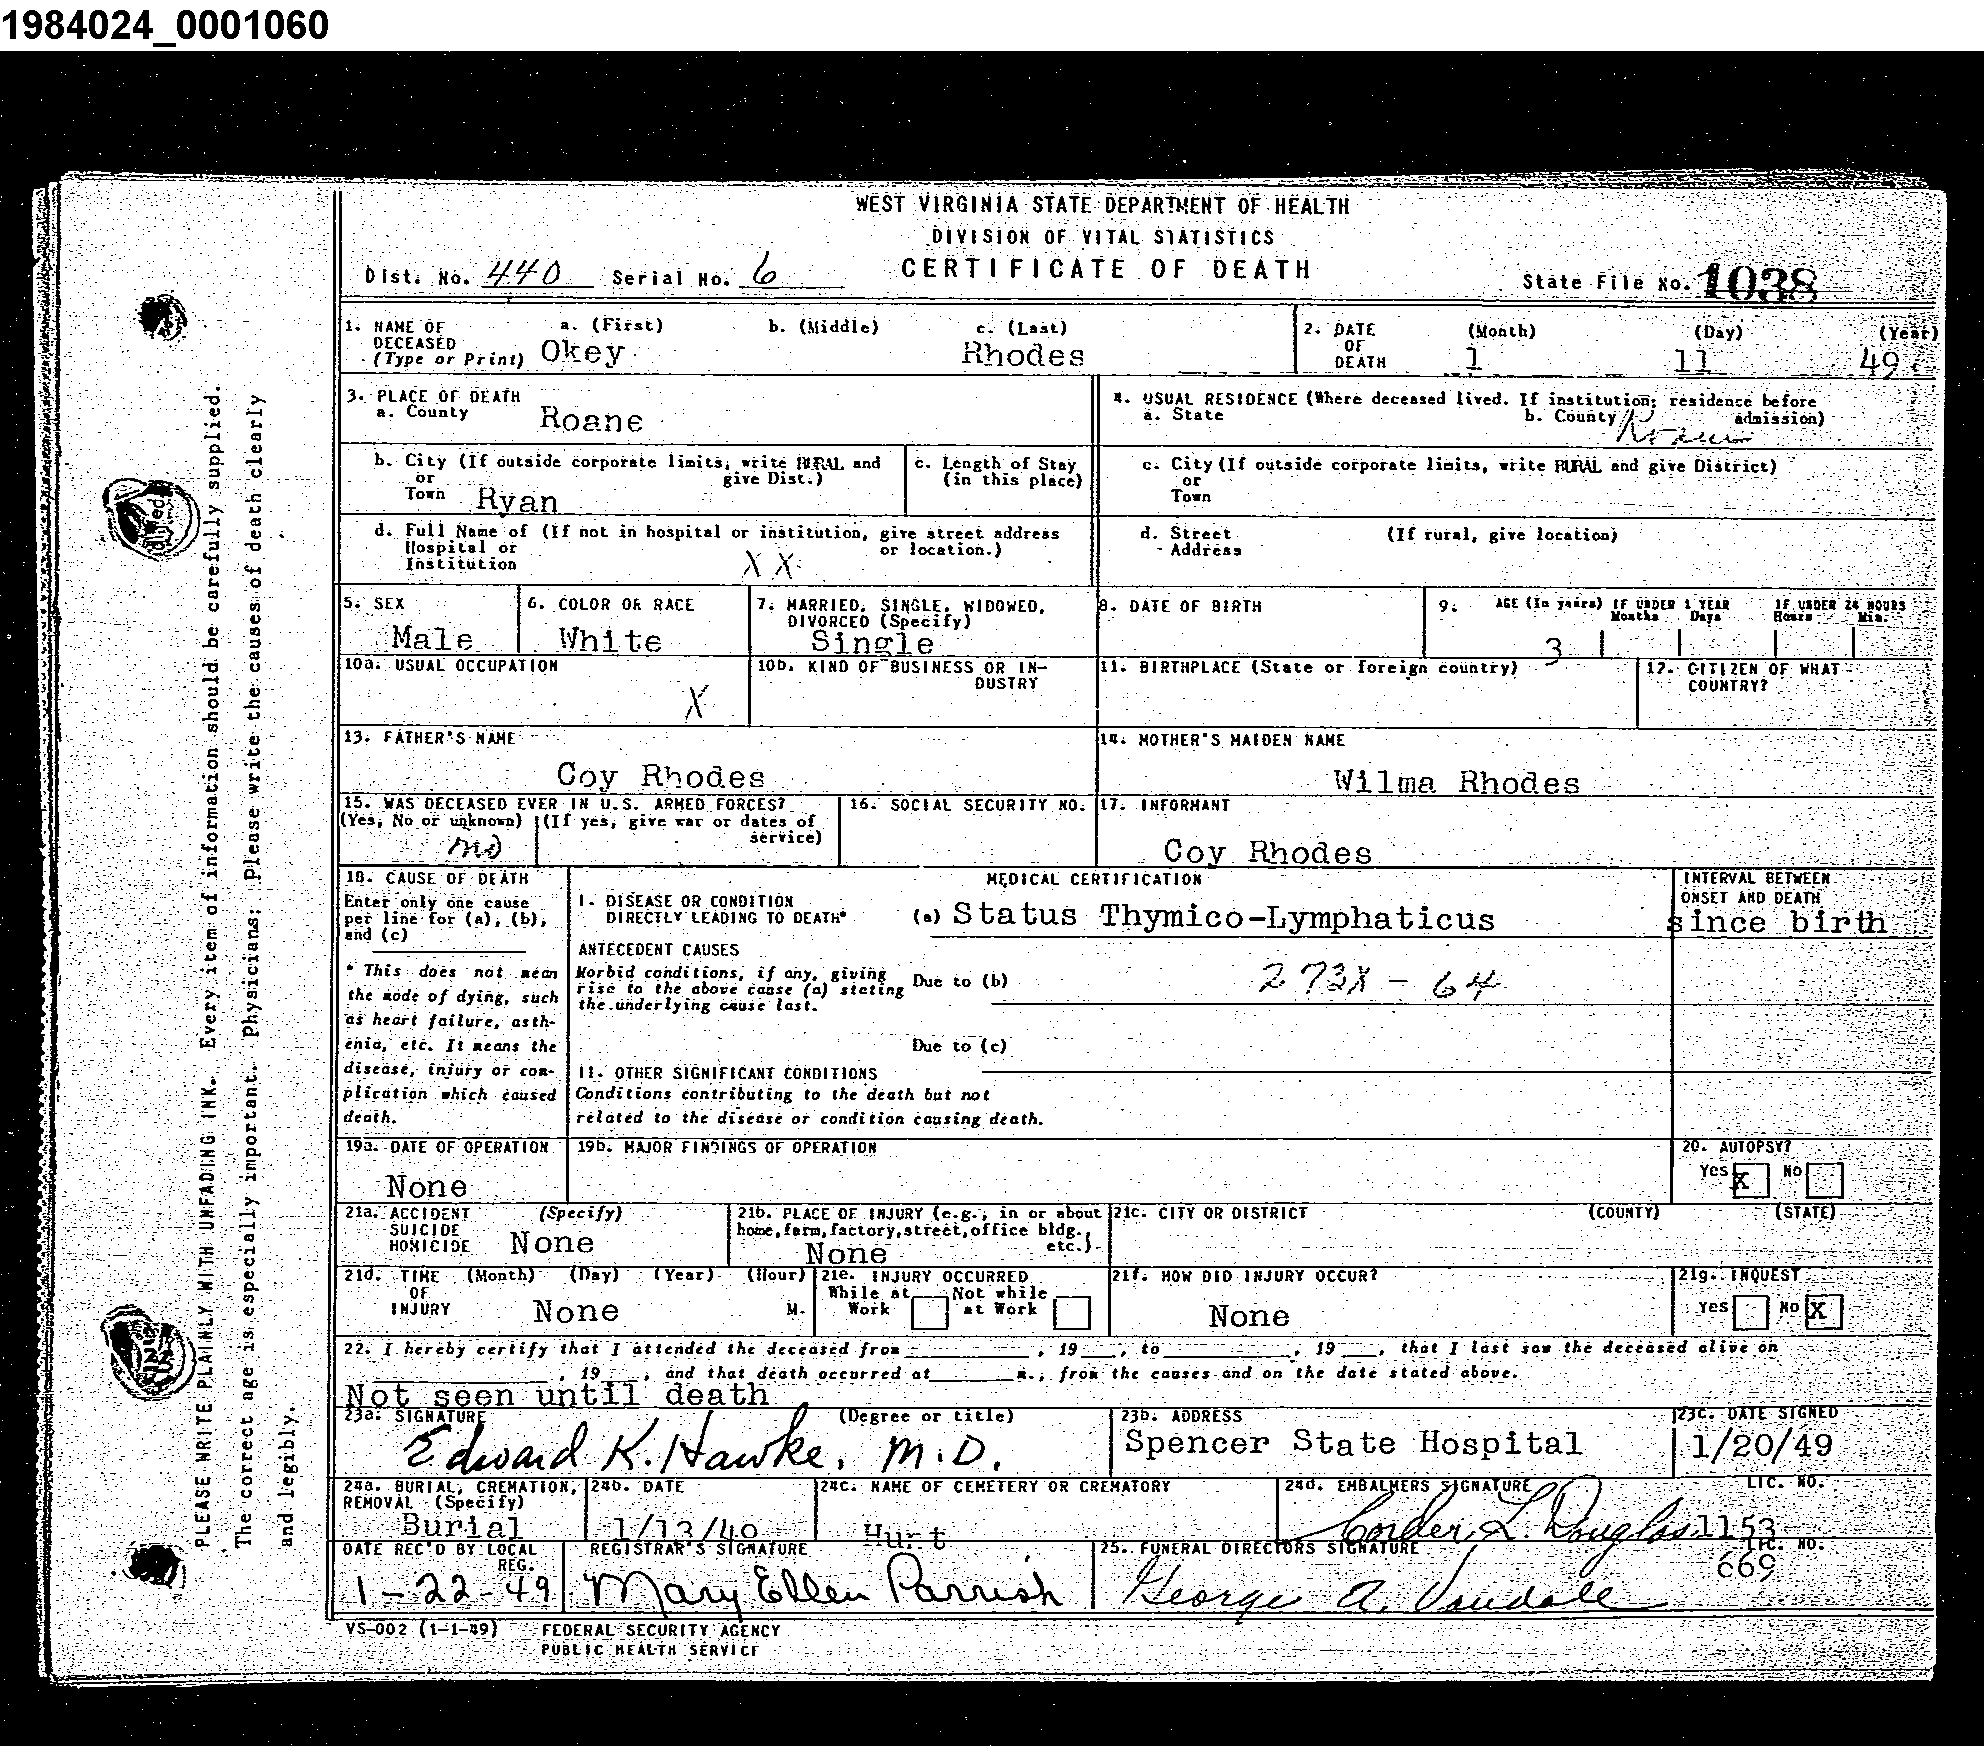 1984024_0001060
WEST VIRGINIA STATE DEPARTMENT OF HEALTH
DIVISION OF VITAL STATISTICS
Dist. No. 440 Serial No. 6 CERTIFICATE OF DEATH State File No. 1038
1. NAME OF DECEASED (Type or Print) a. (First) b. (Middle) c. (Last)
Okey Rhodes
2. DATE OF DEATH (Month) (Day) (Year)
1 11 49
3. PLACE OF DEATH
a. County Roane
4. USUAL RESIDENCE (Where deceased lived. If institution; residence before admission)
a. State b. County Roane
b. City (If outside corporate limits, write RURAL and give Dist.)
or Town Ryan
c. Length of Stay (in this place)
c. City (If outside corporate limits, write RURAL and give District)
or Town
d. Full Name of (If not in hospital or institution, give street address or location.)
Hospital or Institution X X
d. Street Address (If rural, give location)
5. SEX Male
6. COLOR OR RACE White
7. MARRIED, SINGLE, WIDOWED, DIVORCED (Specify) Single
8. DATE OF BIRTH
9. AGE (In years) IF UNDER 1 YEAR Months Days IF UNDER 24 HOURS Hours Min.
3
10a. USUAL OCCUPATION X
10b. KIND OF BUSINESS OR INDUSTRY
11. BIRTHPLACE (State or foreign country)
12. CITIZEN OF WHAT COUNTRY?
13. FATHER'S NAME
Coy Rhodes
14. MOTHER'S MAIDEN NAME
Wilma Rhodes
15. WAS DECEASED EVER IN U.S. ARMED FORCES?
(Yes, No or unknown) (If yes, give war or dates of service)
no
16. SOCIAL SECURITY NO.
17. INFORMANT
Coy Rhodes
18. CAUSE OF DEATH
Enter only one cause
per line for (a), (b),
and (c)
* This does not mean
the mode of dying, such
as heart failure, asth-
enia, etc. It means the
disease, injury or com-
plication which caused
death.
MEDICAL CERTIFICATION
I. DISEASE OR CONDITION
DIRECTLY LEADING TO DEATH* (a) Status Thymico-Lymphaticus
INTERVAL BETWEEN
ONSET AND DEATH
since birth
ANTECEDENT CAUSES
Morbid conditions, if any, giving
rise to the above cause (a) stating
the underlying cause last.
Due to (b) 273X - 64
Due to (c)
II. OTHER SIGNIFICANT CONDITIONS
Conditions contributing to the death but not
related to the disease or condition causing death.
19a. DATE OF OPERATION
None
19b. MAJOR FINDINGS OF OPERATION
20. AUTOPSY?
Yes X No
21a. ACCIDENT SUICIDE HOMICIDE (Specify) None
21b. PLACE OF INJURY (e.g., in or about
home, farm, factory, street, office bldg., etc.)
None
21c. CITY OR DISTRICT (COUNTY) (STATE)
21d. TIME OF INJURY (Month) (Day) (Year) (Hour) M.
None
21e. INJURY OCCURRED
While at Work Not while at Work
21f. HOW DID INJURY OCCUR?
None
21g. INQUEST
Yes No X
22. I hereby certify that I attended the deceased from , 19 , to , 19 , that I last saw the deceased alive on
, 19 , and that death occurred at m., from the causes and on the date stated above.
Not seen until death
23a. SIGNATURE (Degree or title)
Edward K. Hawke, M.D.
23b. ADDRESS
Spencer State Hospital
23c. DATE SIGNED
1/20/49
24a. BURIAL, CREMATION, REMOVAL (Specify)
Burial
24b. DATE
1/13/49
24c. NAME OF CEMETERY OR CREMATORY
Hurt
24d. EMBALMERS SIGNATURE LIC. NO.
Corder L. Douglas 1153
DATE REC'D BY LOCAL REG.
1-22-49
REGISTRAR'S SIGNATURE
Mary Ellen Parrish
25. FUNERAL DIRECTORS SIGNATURE LIC. NO.
George A. Vandale 669
VS-002 (1-1-49) FEDERAL SECURITY AGENCY
PUBLIC HEALTH SERVICE
PLEASE WRITE PLAINLY WITH UNFADING INK. Every item of information should be carefully supplied.
The correct age is especially important. Physicians: please write the causes of death clearly
and legibly.